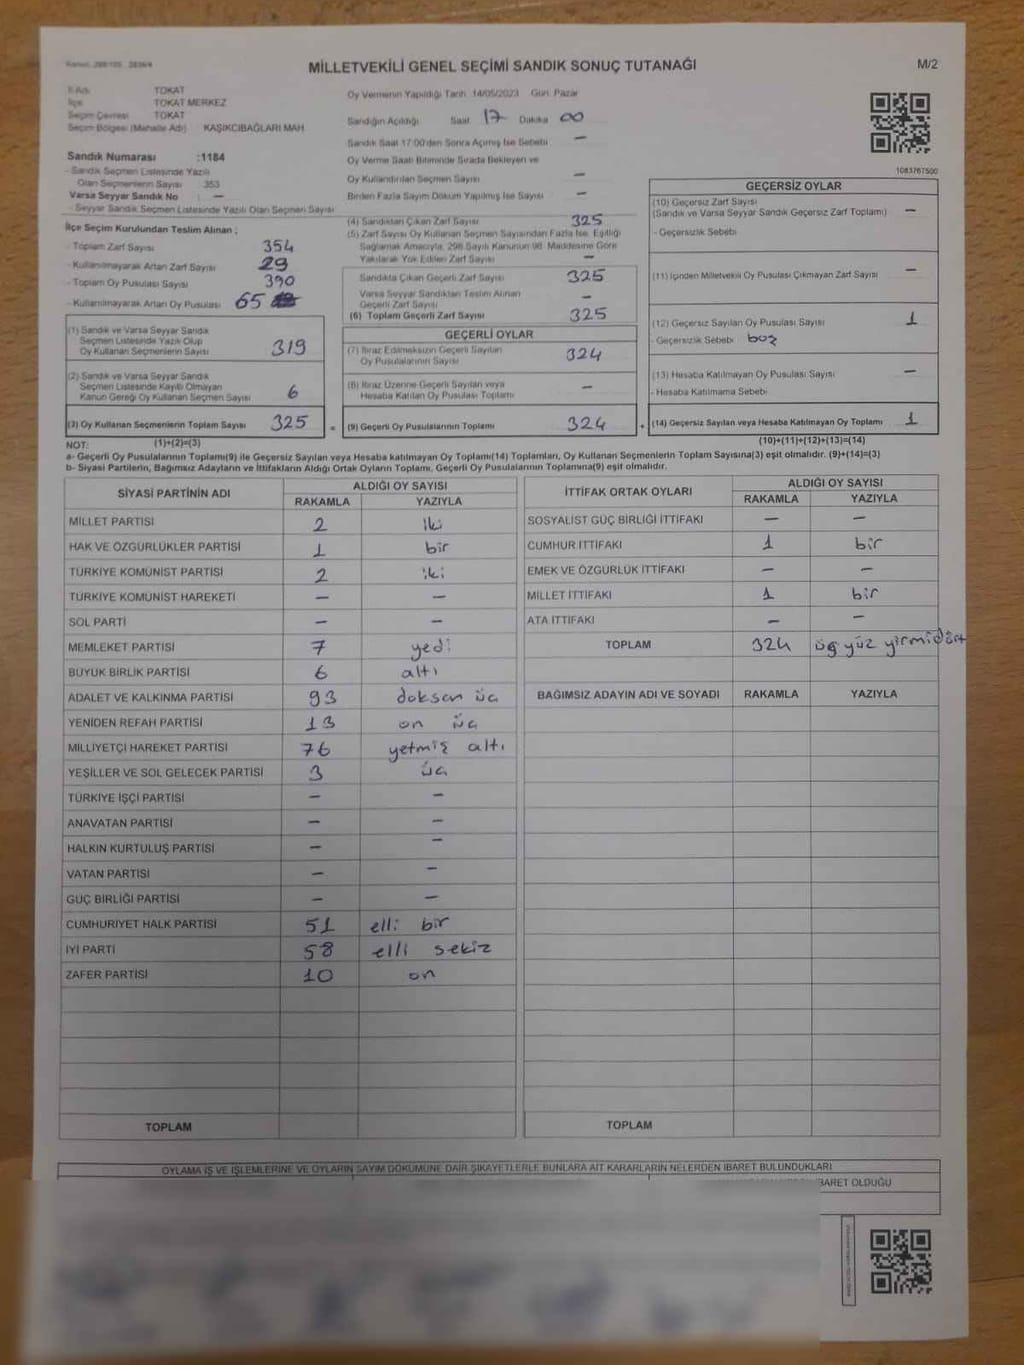 MİLLETVEKİLİ GENEL SEÇİMİ SANDIK SONUÇ TUTANAĞI
M/2
İl Adı TOKAT
İlçe TOKAT MERKEZ
Seçim Çevresi TOKAT
Seçim Bölgesi (Mahalle Adı) KAŞIKCIBAĞLARI MAH.
Sandık Numarası :1184
- Sandık Seçmen Listesinde Yazılı
Olan Seçmenlerin Sayısı 353
Varsa Seyyar Sandık No : —
- Seyyar Sandık Seçmen Listesinde Yazılı Olan Seçmen Sayısı
İlçe Seçim Kurulundan Teslim Alınan ;
- Toplam Zarf Sayısı 354
- Kullanılmayarak Artan Zarf Sayısı 29
- Toplam Oy Pusulası Sayısı 390
- Kullanılmayarak Artan Oy Pusulası 65
(1) Sandık ve Varsa Seyyar Sandık
Seçmen Listesinde Yazılı Olup
Oy Kullanan Seçmenlerin Sayısı 319
(2) Sandık ve Varsa Seyyar Sandık
Seçmen Listesinde Kayıtlı Olmayan
Kanun Gereği Oy Kullanan Seçmen Sayısı 6
(3) Oy Kullanan Seçmenlerin Toplam Sayısı 325
Oy Vermenin Yapıldığı Tarih 14/05/2023 Gün Pazar
Sandığın Açıldığı Saat 17 Dakika 00
Sandık Saat 17:00'den Sonra Açılmış İse Sebebi —
Oy Verme Saati Bitiminde Sırada Bekleyen ve
Oy Kullandırılan Seçmen Sayısı —
Birden Fazla Sayım Döküm Yapılmış İse Sayısı —
(4) Sandıktan Çıkan Zarf Sayısı 325
(5) Zarf Sayısı Oy Kullanan Seçmen Sayısından Fazla İse, Eşitliği
Sağlamak Amacıyla, 298 Sayılı Kanunun 98. Maddesine Göre
Yakılarak Yok Edilen Zarf Sayısı —
Sandıkta Çıkan Geçerli Zarf Sayısı 325
Varsa Seyyar Sandıktan Teslim Alınan
Geçerli Zarf Sayısı —
(6) Toplam Geçerli Zarf Sayısı 325
GEÇERLİ OYLAR
(7) İtiraz Edilmeksizin Geçerli Sayılan
Oy Pusulalarının Sayısı 324
(8) İtiraz Üzerine Geçerli Sayılan veya
Hesaba Katılan Oy Pusulası Toplamı —
= (9) Geçerli Oy Pusulalarının Toplamı 324
1083767500
GEÇERSİZ OYLAR
(10) Geçersiz Zarf Sayısı
(Sandık ve Varsa Seyyar Sandık Geçersiz Zarf Toplamı) —
- Geçersizlik Sebebi
(11) İçinden Milletvekili Oy Pusulası Çıkmayan Zarf Sayısı —
(12) Geçersiz Sayılan Oy Pusulası Sayısı 1
- Geçersizlik Sebebi boş
(13) Hesaba Katılmayan Oy Pusulası Sayısı —
- Hesaba Katılmama Sebebi
+ (14) Geçersiz Sayılan veya Hesaba Katılmayan Oy Toplamı 1
NOT: (1)+(2)=(3) (10)+(11)+(12)+(13)=(14)
a- Geçerli Oy Pusulalarının Toplamı(9) ile Geçersiz Sayılan veya Hesaba katılmayan Oy Toplamı(14) Toplamları, Oy Kullanan Seçmenlerin Toplam Sayısına(3) eşit olmalıdır. (9)+(14)=(3)
b- Siyasi Partilerin, Bağımsız Adayların ve İttifakların Aldığı Ortak Oyların Toplamı, Geçerli Oy Pusulalarının Toplamına(9) eşit olmalıdır.
SİYASİ PARTİNİN ADI ALDIĞI OY SAYISI
RAKAMLA YAZIYLA
MİLLET PARTİSİ 2 iki
HAK VE ÖZGÜRLÜKLER PARTİSİ 1 bir
TÜRKİYE KOMÜNİST PARTİSİ 2 iki
TÜRKİYE KOMÜNİST HAREKETİ — —
SOL PARTİ — —
MEMLEKET PARTİSİ 7 yedi
BÜYÜK BİRLİK PARTİSİ 6 altı
ADALET VE KALKINMA PARTİSİ 93 doksan üç
YENİDEN REFAH PARTİSİ 13 on üç
MİLLİYETÇİ HAREKET PARTİSİ 76 yetmiş altı
YEŞİLLER VE SOL GELECEK PARTİSİ 3 üç
TÜRKİYE İŞÇİ PARTİSİ — —
ANAVATAN PARTİSİ — —
HALKIN KURTULUŞ PARTİSİ — —
VATAN PARTİSİ — —
GÜÇ BİRLİĞİ PARTİSİ — —
CUMHURİYET HALK PARTİSİ 51 elli bir
İYİ PARTİ 58 elli sekiz
ZAFER PARTİSİ 10 on
TOPLAM
İTTİFAK ORTAK OYLARI ALDIĞI OY SAYISI
RAKAMLA YAZIYLA
SOSYALİST GÜÇ BİRLİĞİ İTTİFAKI — —
CUMHUR İTTİFAKI 1 bir
EMEK VE ÖZGÜRLÜK İTTİFAKI — —
MİLLET İTTİFAKI 1 bir
ATA İTTİFAKI — —
TOPLAM 324 üç yüz yirmidört
BAĞIMSIZ ADAYIN ADI VE SOYADI RAKAMLA YAZIYLA
TOPLAM
OYLAMA İŞ VE İŞLEMLERİNE VE OYLARIN SAYIM DÖKÜMÜNE DAİR ŞİKAYETLERLE BUNLARA AİT KARARLARIN NELERDEN İBARET BULUNDUKLARI
BARET OLDUĞU